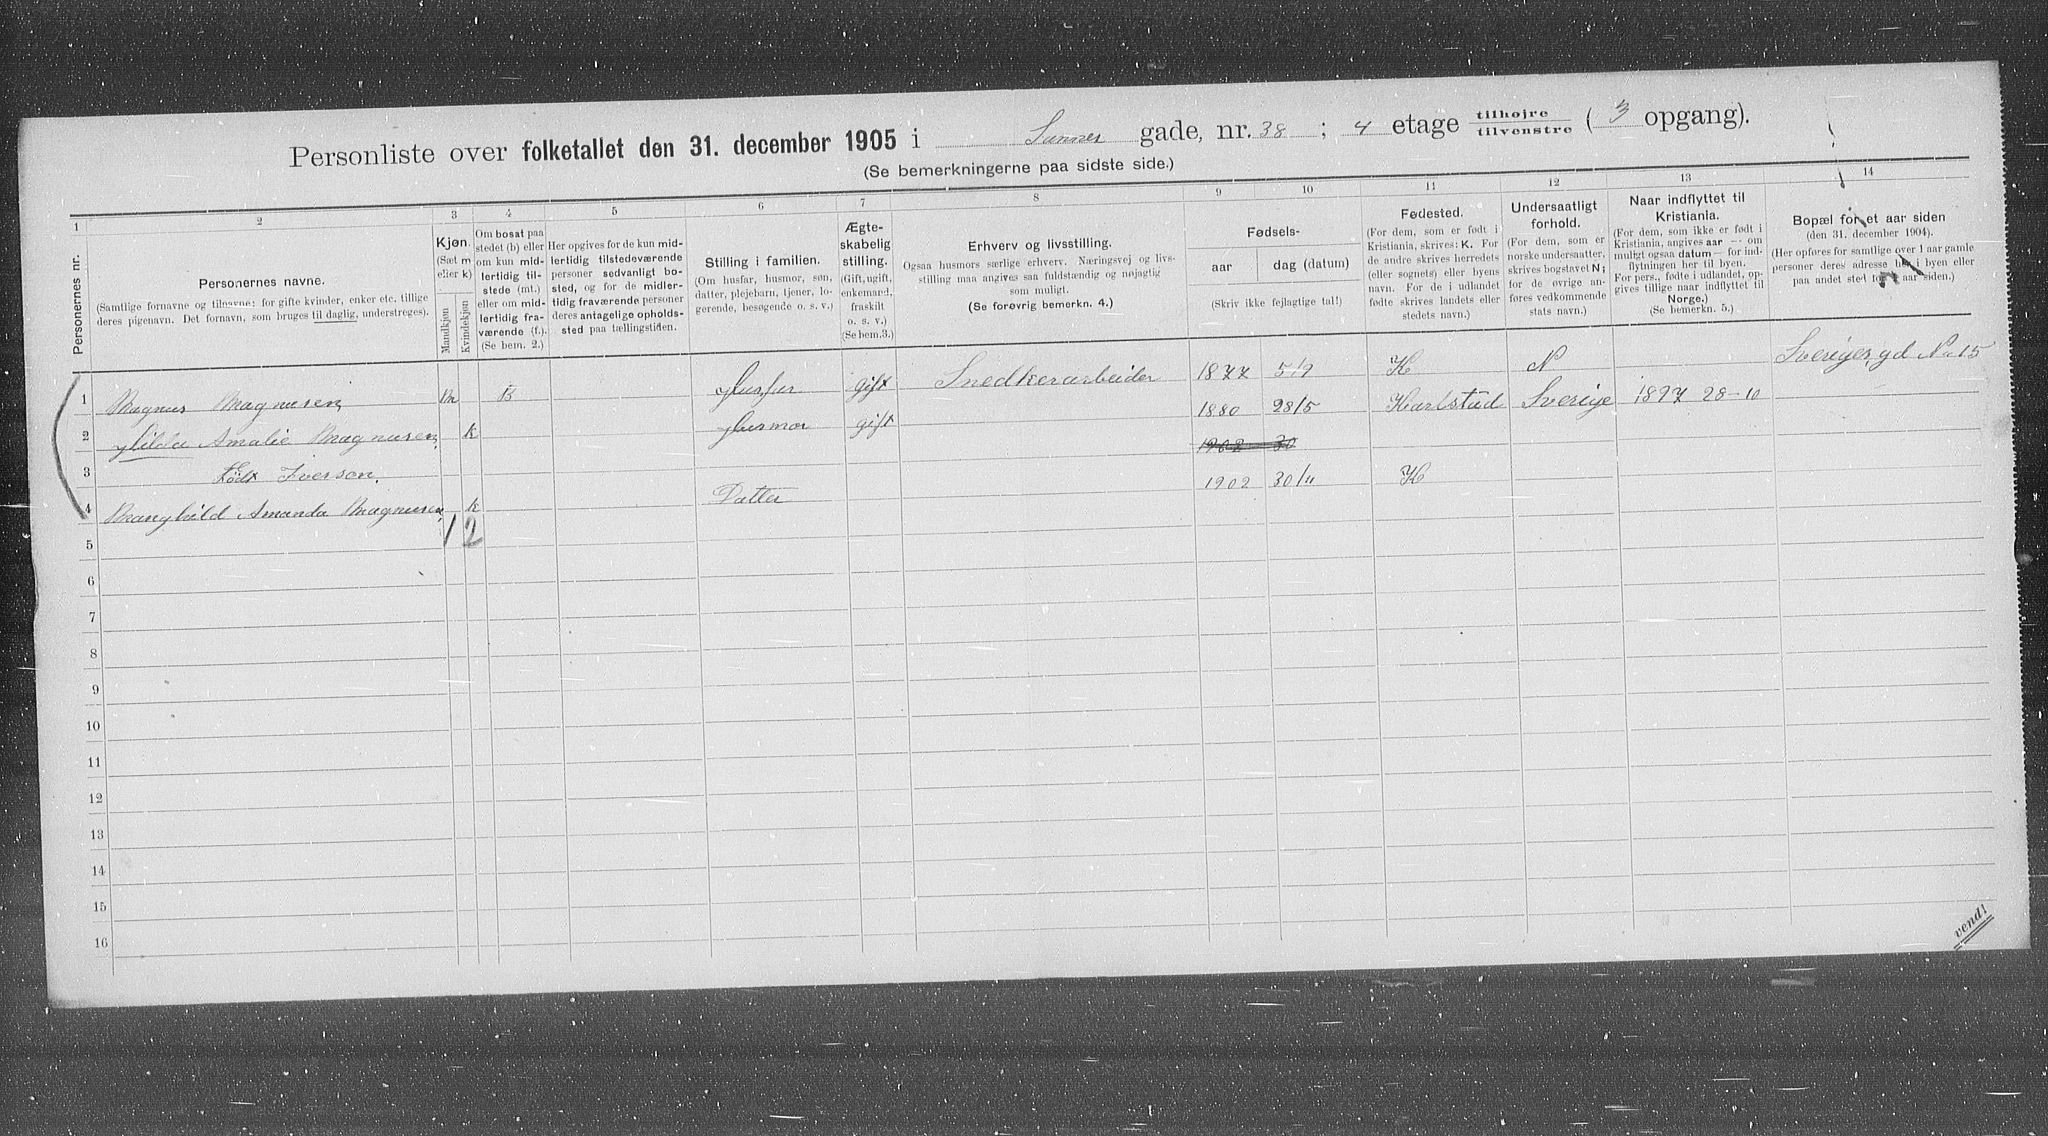 Personliste over folketallet den 31. december 1905 i Sannergade, nr. 38 ; 4 etage tilhøjre / tilvenstre ( 3 opgang).
(Se bemerkningerne paa sidste side.)
1 2 3 4 5 6 7 8 9 10 11 12 13 14
Personernes nr.
Personernes navne.
(Samtlige fornavne og tilnavne; for gifte kvinder, enker etc. tillige
deres pigenavn. Det fornavn, som bruges til daglig, understreges).
Kjøn.
(Sæt m
eller k)
Mandkjøn
Kvindekjøn
Om bosat paa
stedet (b) eller
om kun mid-
lertidig til-
stede (mt.)
eller om mid-
lertidig fra-
værende (f.).
(Se bem. 2.)
Her opgives for de kun mid-
lertidig tilstedeværende
personer sedvanligt bo-
sted, og for de midler-
tidig fraværende personer
deres antagelige opholds-
sted paa tællingstiden.
Stilling i familien.
(Om husfar, husmor, søn,
datter, plejebarn, tjener, lo-
gerende, besøgende o. s. v.)
Ægte-
skabelig
stilling.
(Gift, ugift,
enkemand,
fraskilt
o. s. v.)
(Se bem.3.)
Erhverv og livsstilling.
Ogsaa husmors særlige erhverv. Næringsvej og livs-
stilling maa angives saa fuldstændig og nøjagtig
som muligt.
(Se forøvrig bemerkn. 4.)
Fødsels-
aar dag (datum)
(Skriv ikke fejlagtige tal!)
Fødested.
(For dem, som er født i
Kristiania, skrives: K. For
de andre skrives herredets
(eller sognets) eller byens
navn. For de i udlandet
fødte skrives landets eller
stedets navn.)
Undersaatligt
forhold.
(For dem, som er
norske undersaatter,
skrives bogstavet N;
for de øvrige an-
føres vedkommende
stats navn.)
Naar indflyttet til
Kristiania.
(For dem, som ikke er født i
Kristiania, angives aar — om
muligt ogsaa datum — for ind-
flytningen her til byen.
For pers., fødte i udlandet, op-
gives tillige naar indflyttet til
Norge.)
(Se bemerkn. 5.)
Bopæl for et aar siden
(den 31. december 1904).
(Her opføres for samtlige over 1 aar gamle
personer deres adresse her i byen eller
paa andet sted for et aar siden.)
1 Magnus Magnusen m B Husfar gift Snedkerarbeider 1877 5/9 K N Sveriges gd No 15
2 Hilda Amalie Magnusen, k Husmor gift 1880 28/5 Karlstad Sverige 1897 28-10
3 Født Iversen. 1902 30
4 Manghild Amanda Magnusen, k Datter 1902 30/11 K
1 2
5
6
7
8
9
10
11
12
13
14
15
16
vend!